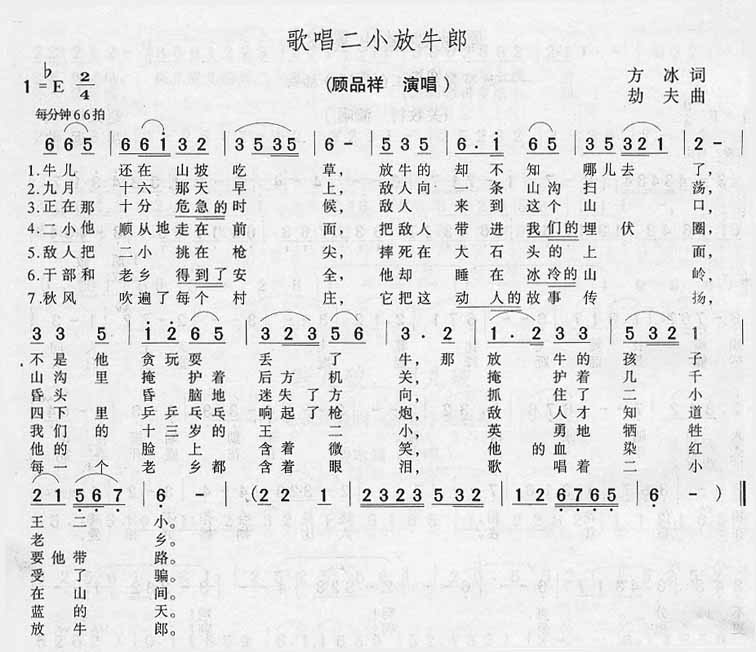 歌唱二小放牛郎
1=♭E 2/4
每分钟66拍
(顾品祥 演唱)
方冰 词
劫夫 曲
6 65 | 66i 32 | 3535 | 6 - | 535 35 | 6·i 65 | 35321 | 2 - |
1.牛儿 还在 山坡 吃 草, 放牛的 却不 知 哪儿去 了,
2.九月 十六 那天 早 上, 敌人向 一条 山沟 扫 荡,
3.正在那 十分 危急的时 候, 敌人 来到 这个 山 口,
4.二小他 顺从地走在 前 面, 把敌人 带进 我们的埋伏 圈,
5.敌人把 二小 挑在枪 尖, 摔死在 大石 头的上 面,
6.干部和 老乡 得到了安 全, 他却 睡在冰冷的山 岭,
7.秋风 吹遍了每个 村 庄, 它把这 动人的故事 传 扬,
33 3 | i·2 65 | 323 56 | 3·2 | 1 23 | 2 1 |
不是 他 贪玩耍 丢 了 牛,那 放 牛的 孩 子
山沟 里 掩护着 后方 机 关, 掩 护着 几 千
昏头 昏脑地 迷失了方 向, 抓 住了 二 小
四下 里 乒乓乒乓 响起了 枪 炮, 敌 人才 知 道
我们的 十三岁的 王 二 小, 英 勇地 牺 牲
他的 脸上 含着 微 笑, 他 的血 染 红
每一个 老乡 都 含着 眼 泪, 歌 唱着 二 小
21 567 | 6 - | (22 1 | 2323 532 | 12 3 | 2765 | 6 -) ‖
王 二 小。
老 乡。
要他带 路。
受 了 骗。
在 山 间。
蓝 的 天。
放 牛 郎。